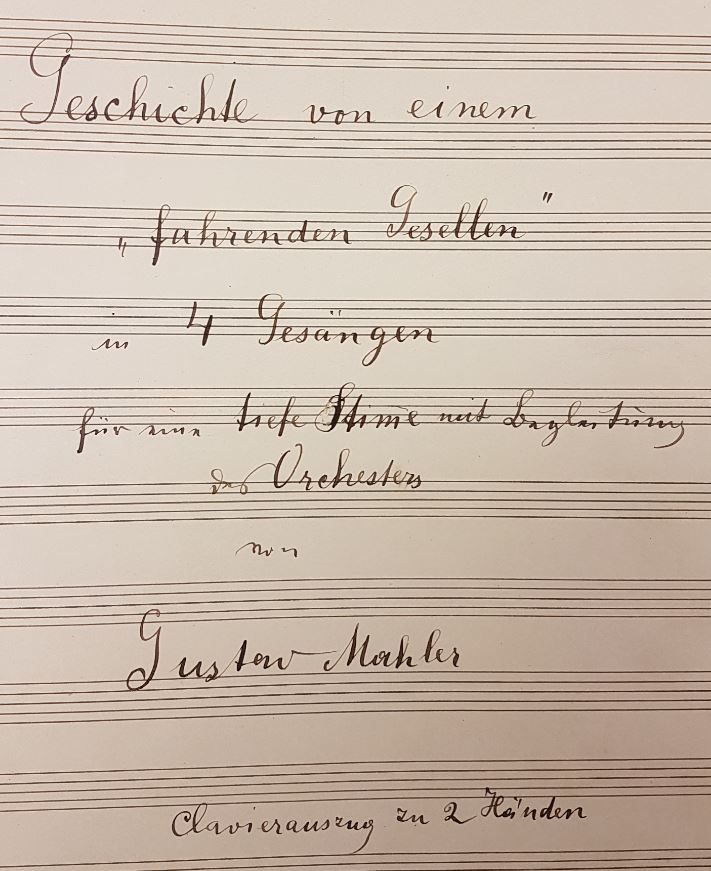 Geschichte von einem
„fahrenden Gesellen"
in 4 Gesängen
für eine tiefe Stim̅e mit Begleitung
des Orchesters
von
Gustav Mahler
Clavierauszug zu 2 Händen